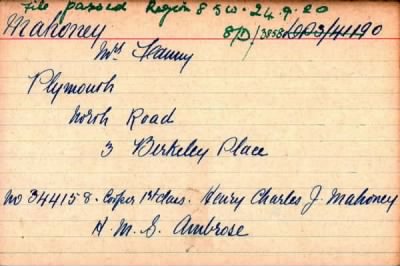 File passed Region 8 s w. 24.9.20
Mahoney 8/D/3858
Mrs Fanny
Plymouth
North Road
3 Berkeley Place
No 344158. Cooper 1st Class. Henry Charles J. Mahoney
H. M. S. Ambrose